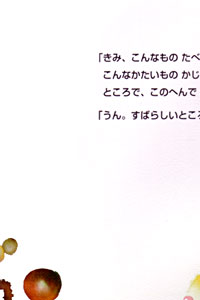 「きみ、こんなもの たべ
こんなかたいもの かじ
ところで、このへんで
「うん。すばらしいところ